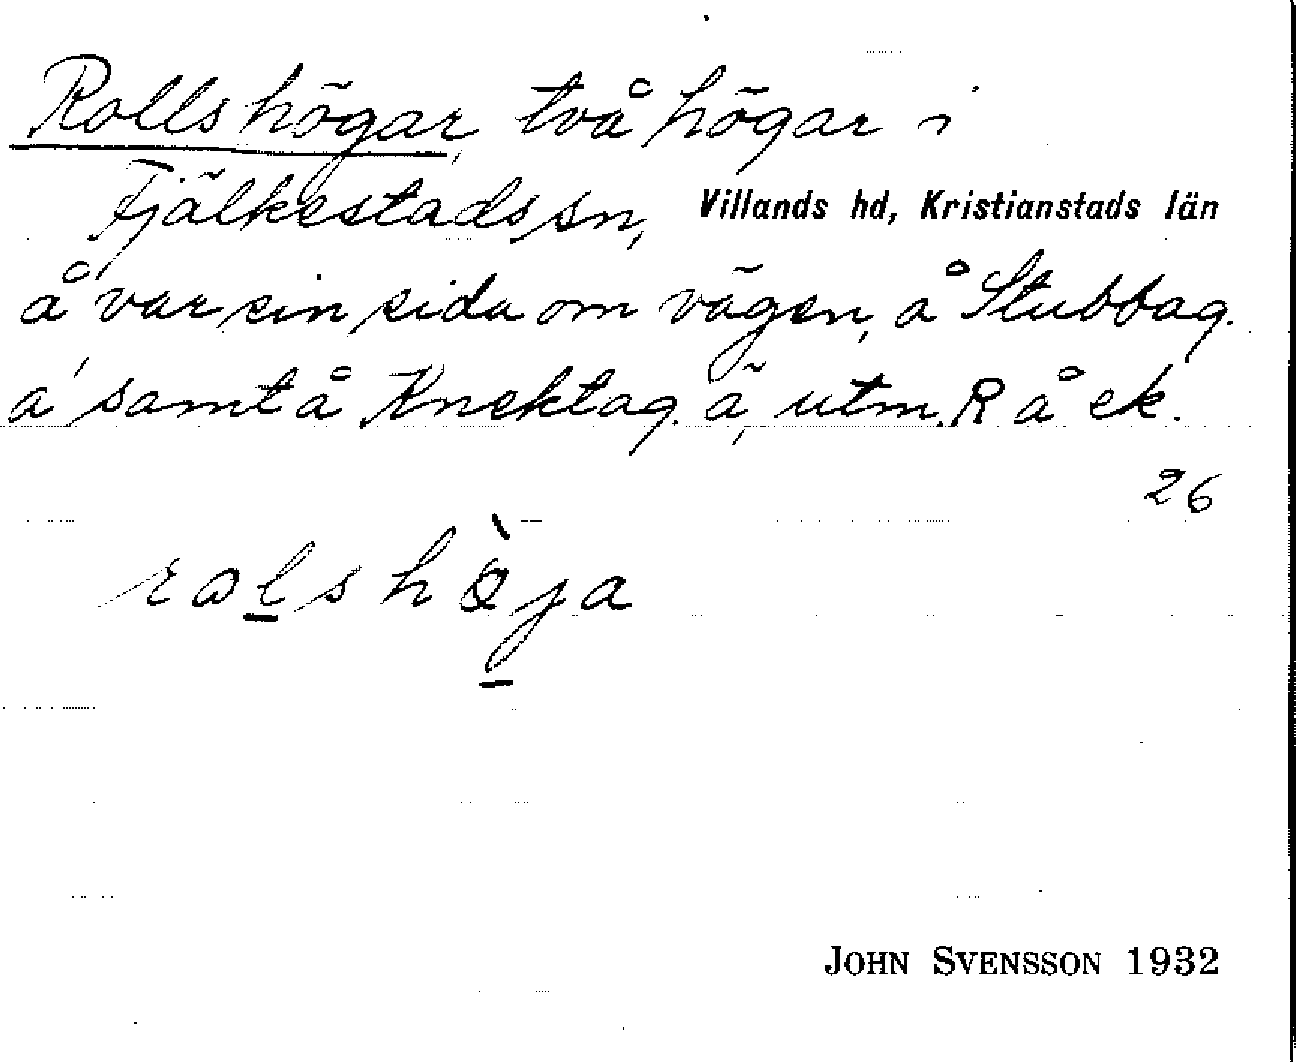 Rollshögar, två högar i
Fjälkestads sn, Villands hd, Kristianstads län
å var sin sida om vägen, å Stubbag.
ä, samt å Knektag. ä, utm. R å ek.
26
rolshøja
JOHN SVENSSON 1932